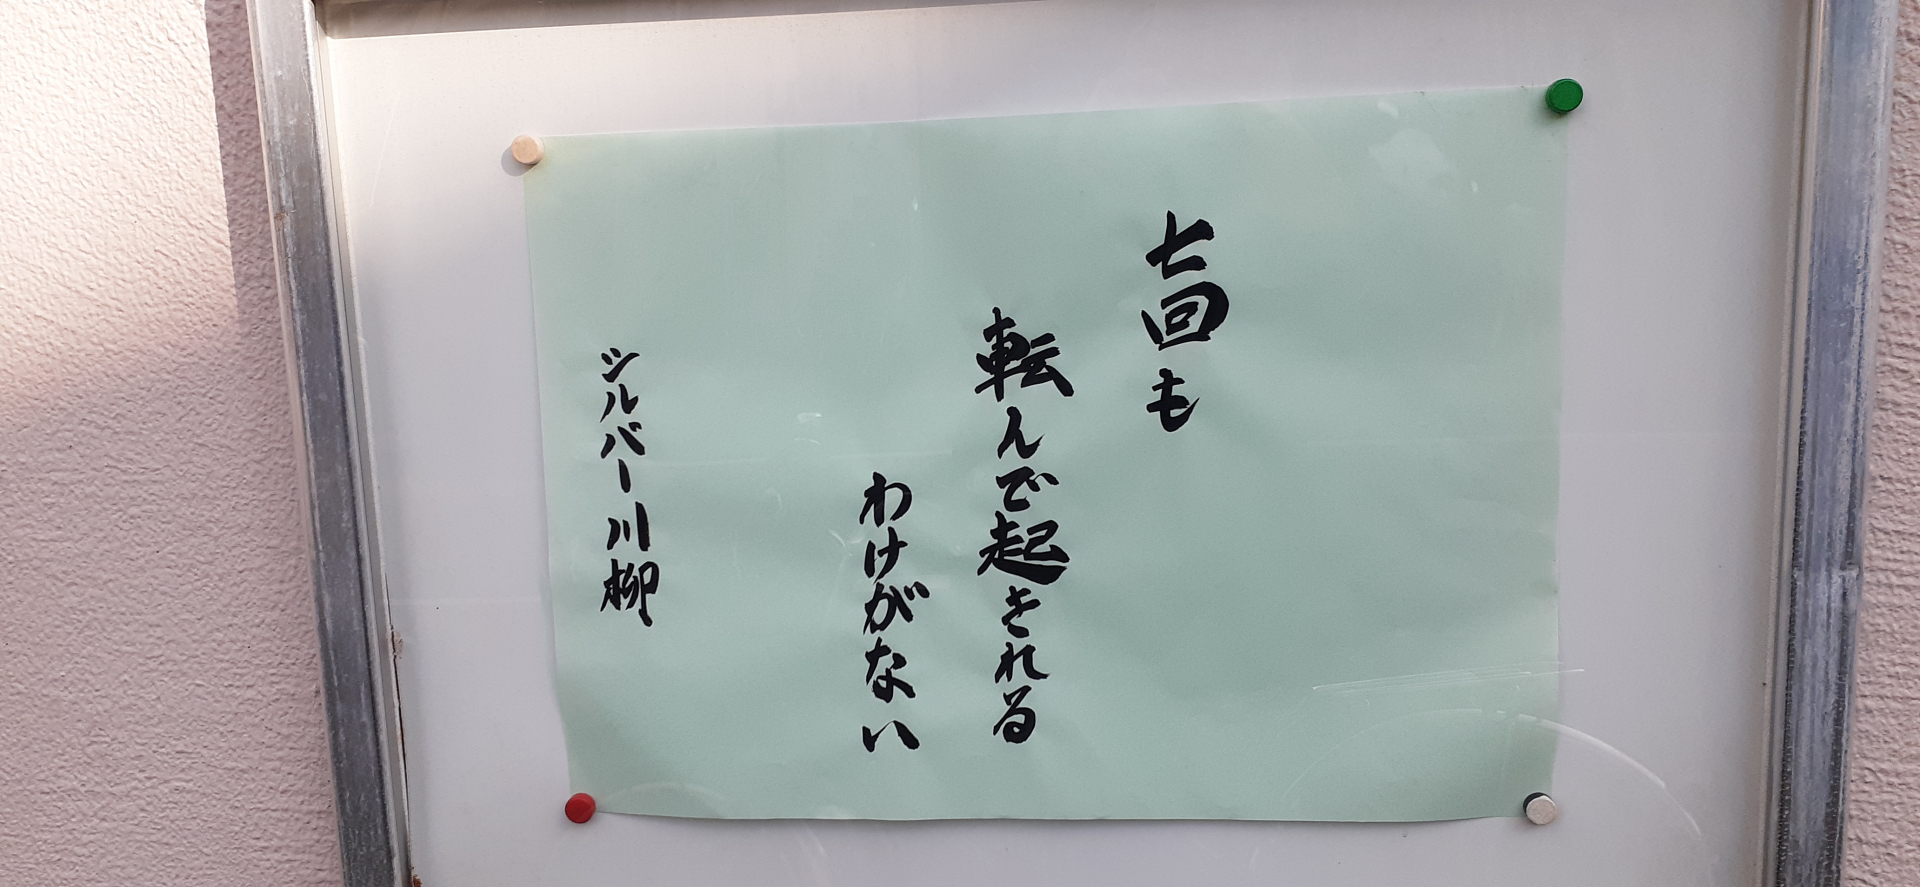 七回も
転んで起きれる
わけがない
シルバー川柳